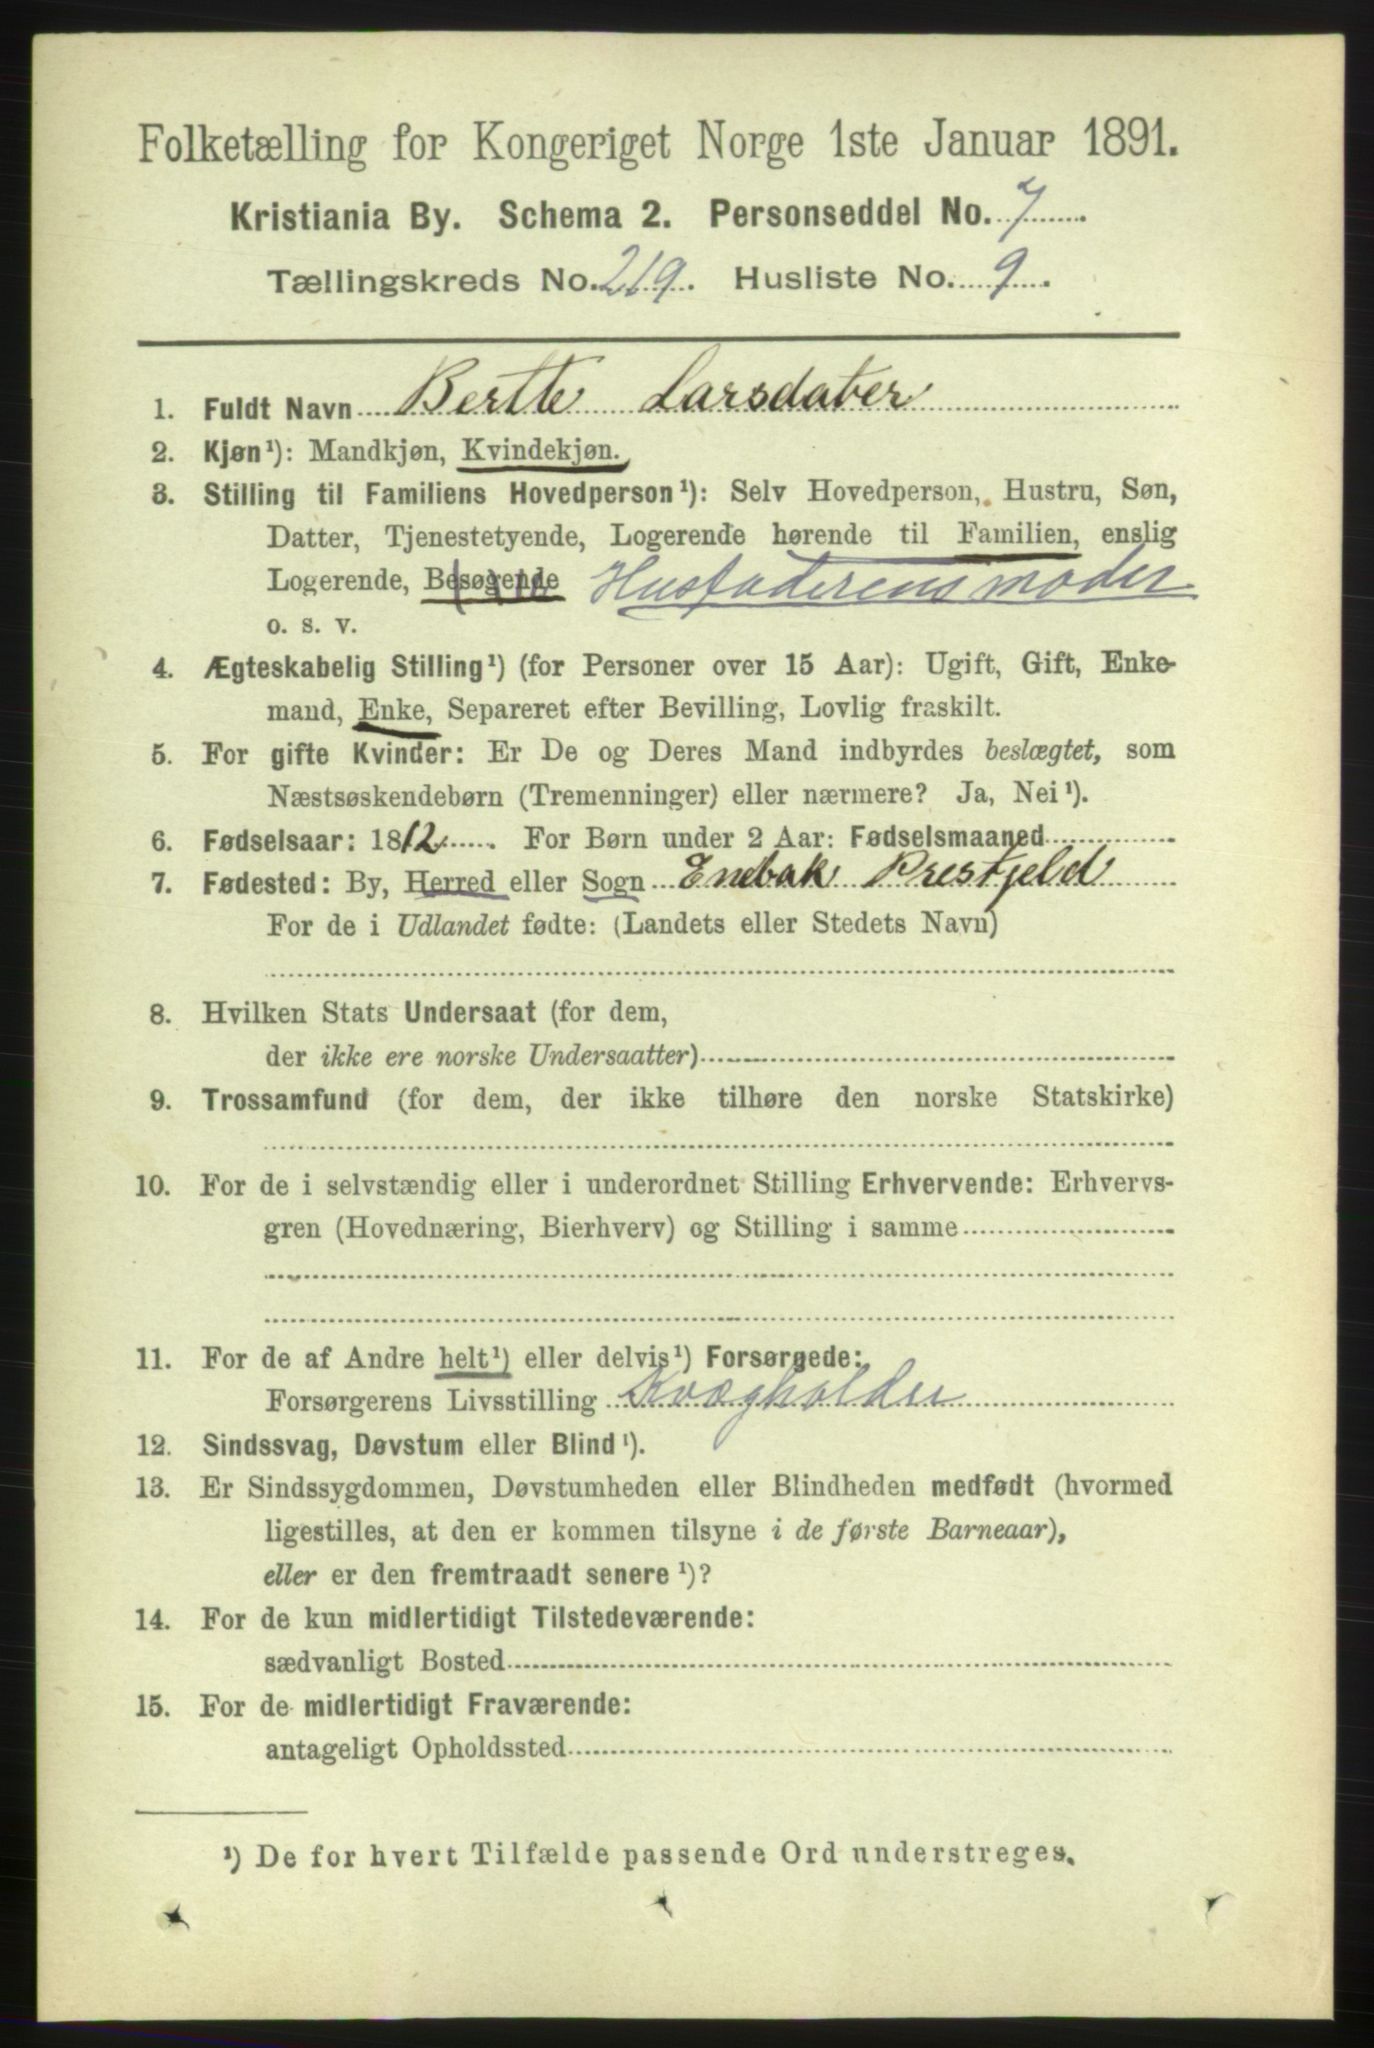 Folketælling for Kongeriget Norge 1ste Januar 1891.
Kristiania By. Schema 2. Personseddel No. 7
Tællingskreds No. 219. Husliste No. 9.
1. Fuldt Navn Berthe Larsdater
2. Kjøn¹): Mandkjøn, Kvindekjøn.
3. Stilling til Familiens Hovedperson¹): Selv Hovedperson, Hustru, Søn,
Datter, Tjenestetyende, Logerende hørende til Familien, enslig
Logerende, Besøgende Husfaderens moder
o. s. v.
4. Ægteskabelig Stilling¹) (for Personer over 15 Aar): Ugift, Gift, Enke-
mand, Enke, Separeret efter Bevilling, Lovlig fraskilt.
5. For gifte Kvinder: Er De og Deres Mand indbyrdes beslægtet, som
Næstsøskendebørn (Tremenninger) eller nærmere? Ja, Nei¹).
6. Fødselsaar: 1812. For Børn under 2 Aar: Fødselsmaaned
7. Fødested: By, Herred eller Sogn Enebak Prestjeld
For de i Udlandet fødte: (Landets eller Stedets Navn)
8. Hvilken Stats Undersaat (for dem,
der ikke ere norske Undersaatter)
9. Trossamfund (for dem, der ikke tilhøre den norske Statskirke)
10. For de i selvstændig eller i underordnet Stilling Erhvervende: Erhvervs-
gren (Hovednæring, Bierhverv) og Stilling i samme
11. For de af Andre helt¹) eller delvis¹) Forsørgede:
Forsørgerens Livsstilling Kvægholder
12. Sindssvag, Døvstum eller Blind¹).
13. Er Sindssygdommen, Døvstumheden eller Blindheden medfødt (hvormed
ligestilles, at den er kommen tilsyne i de første Barneaar),
eller er den fremtraadt senere¹)?
14. For de kun midlertidigt Tilstedeværende:
sædvanligt Bosted
15. For de midlertidigt Fraværende:
antageligt Opholdssted
¹) De for hvert Tilfælde passende Ord understreges.